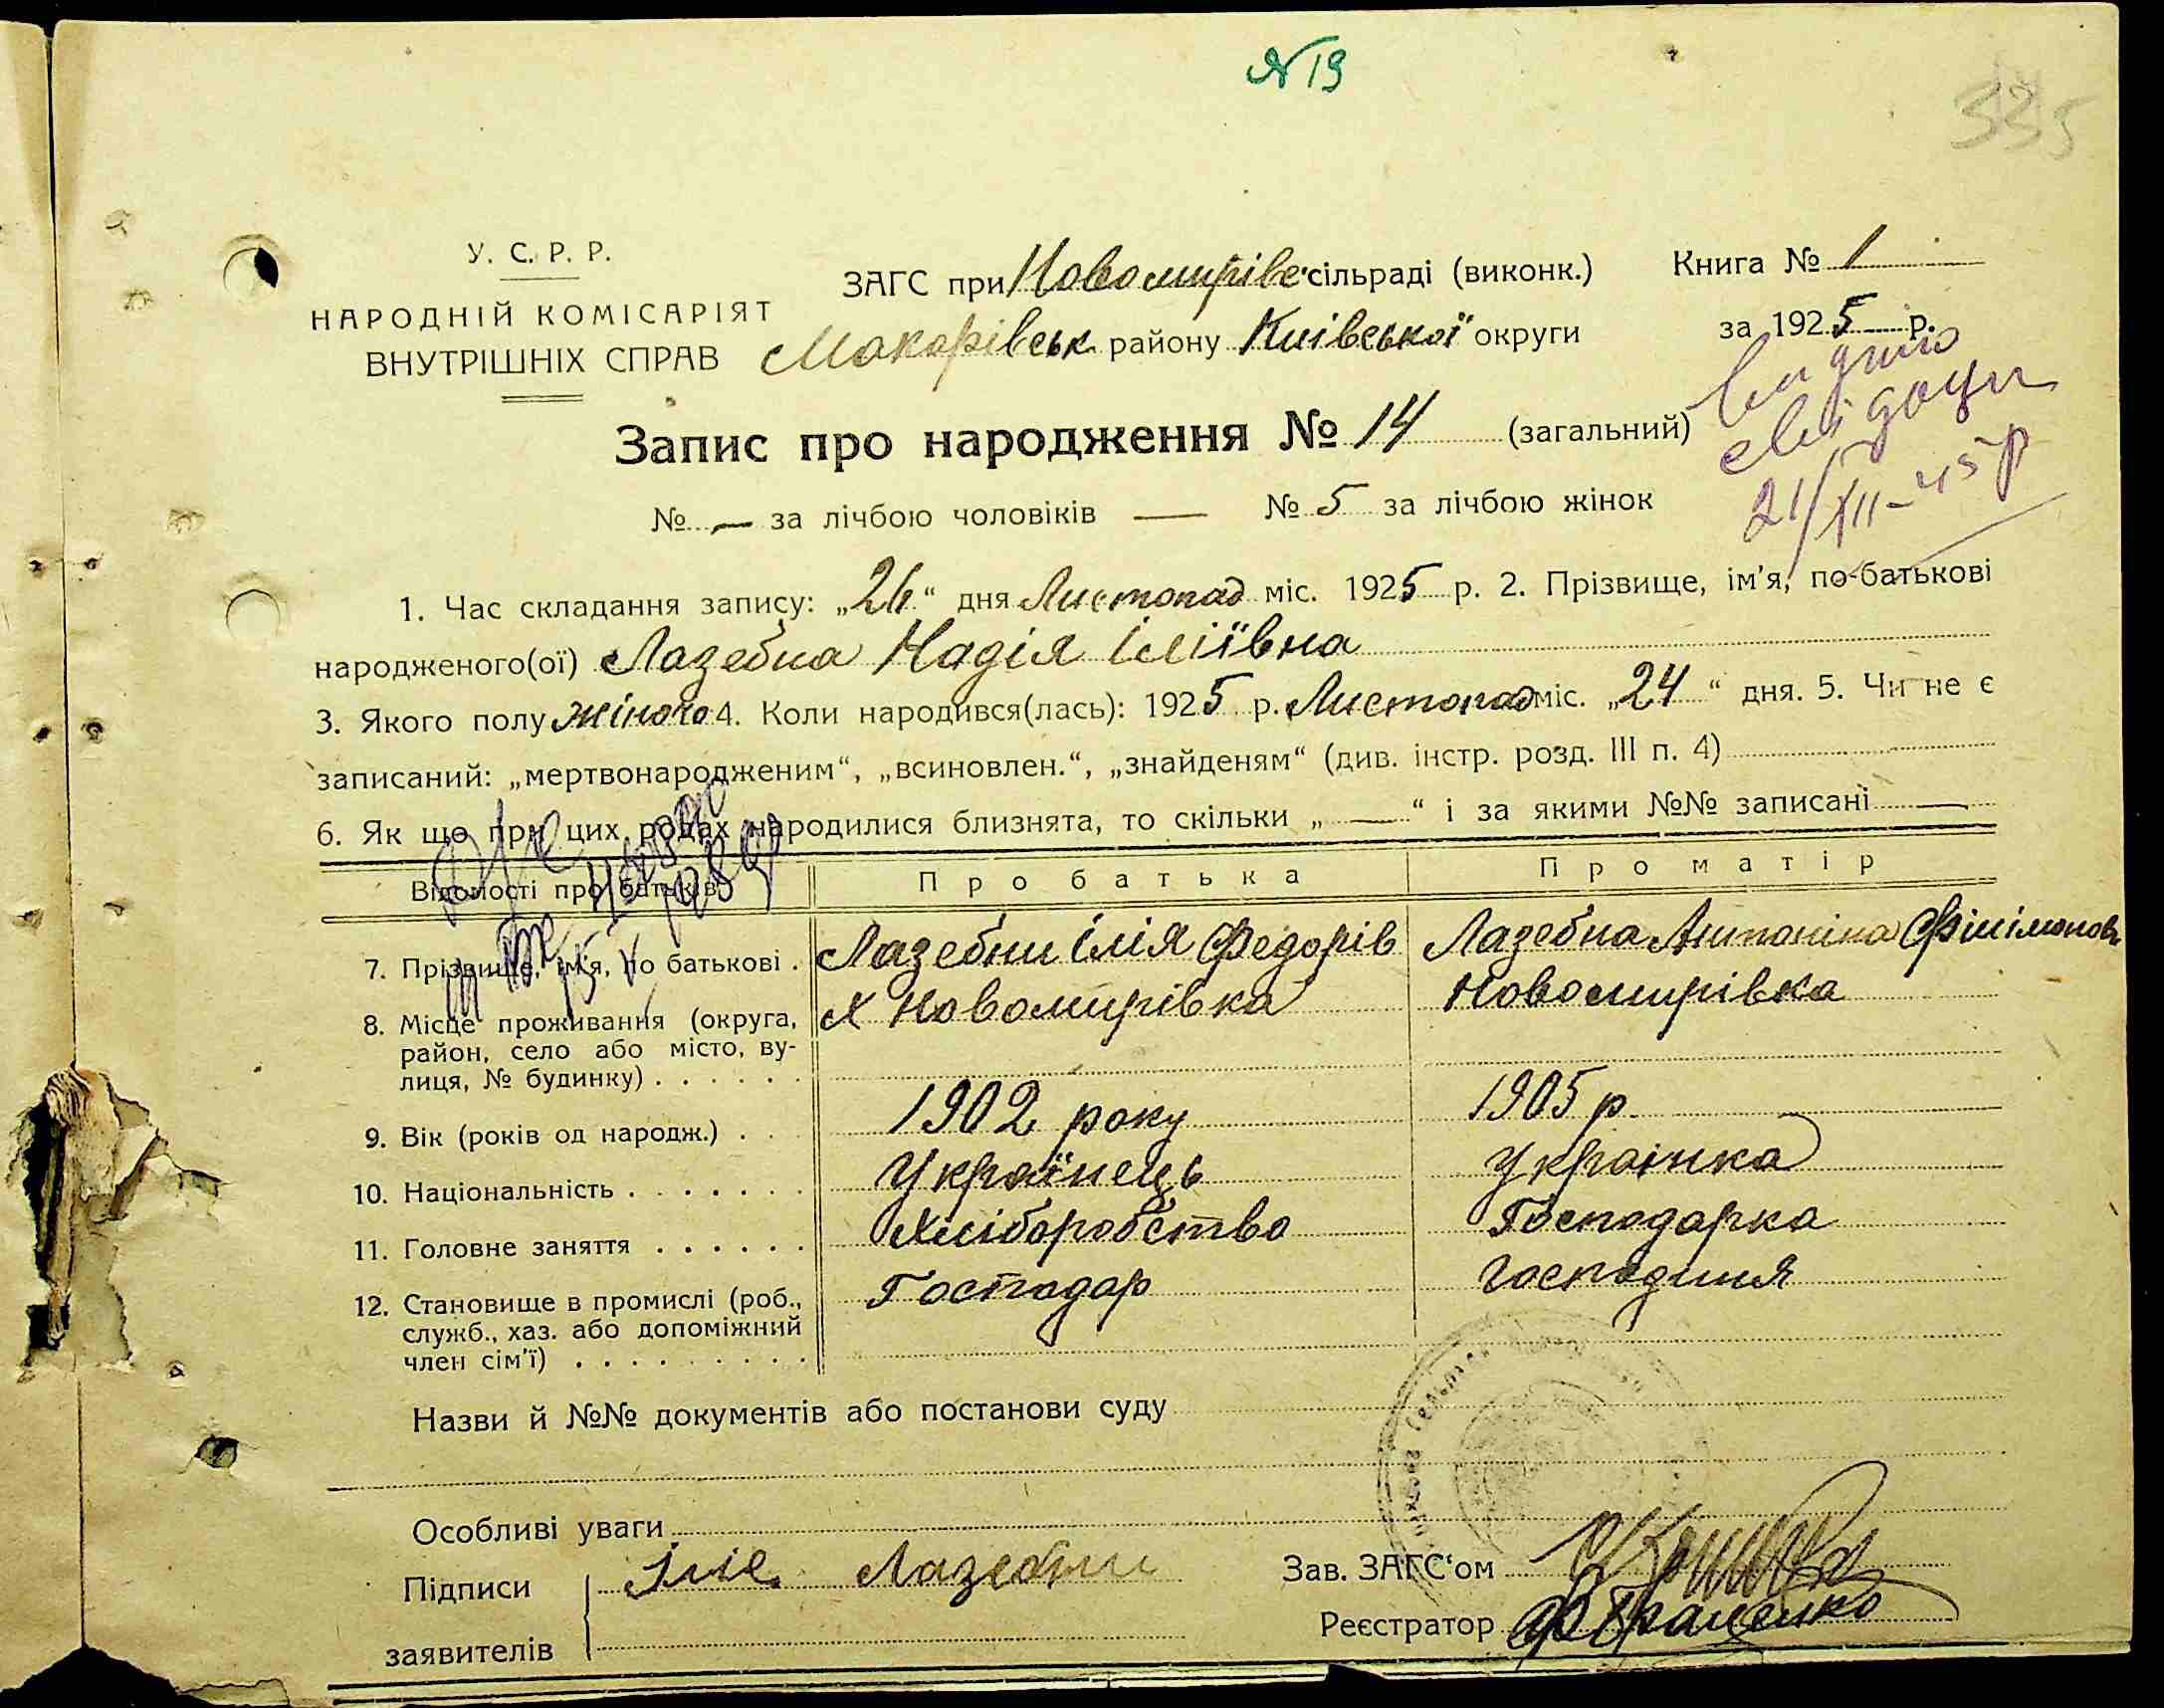 № 19
335
У. С. Р. Р.
НАРОДНІЙ КОМІСАРІЯТ
ВНУТРІШНІХ СПРАВ
ЗАГС при Новомирівс. сільраді (виконк.)
Макарівськ району Київської округи
Книга № 1
за 1925 р.
Видано
свідоцт
21/XII-45 р
Запис про народження № 14 (загальний)
№ — за лічбою чоловіків — № 5 за лічбою жінок
1. Час складання запису: „26“ дня Листопад міс. 1925 р. 2. Прізвище, ім'я, по-батькові
народженого(ої) Лазебна Надія Іліївна
3. Якого полу жіночо 4. Коли народився(лась): 1925 р. Листопад міс. „24“ дня. 5. Чи не є
записаний: „мертвонародженим“, „всиновлен.“, „знайденям“ (див. інстр. розд. III п. 4)
6. Як що при цих родах народилися близнята, то скільки „—“ і за якими №№ записані —
Відомості про батьків Про батька Про матір
7. Прізвище, ім'я, по батькові . Лазебни Ілія Федорів Лазебна Антоніна Філімонов
8. Місце проживання (округа, х Новомирівка Новомирівка
район, село або місто, ву-
лиця, № будинку) . . . . . .
9. Вік (років од народж.) . . 1902 року 1905 р.
10. Національність . . . . . . . Українець Українка
11. Головне заняття . . . . . . Хліборобство Господарка
12. Становище в промислі (роб., Господар Господиня
служб., хаз. або допоміжний
член сім'ї) . . . . . . . . .
Назви й №№ документів або постанови суду
Особливі уваги
Підписи Ілія Лазебни
заявителів
Зав. ЗАГС'ом
Реєстратор